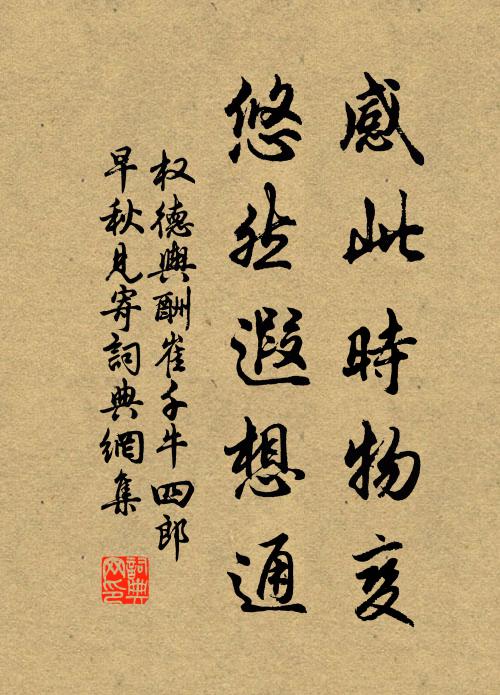 感此時物变
悠然遐想通
权德輿酬崔千牛四郎
早秋見寄詞典網集
詞典网印